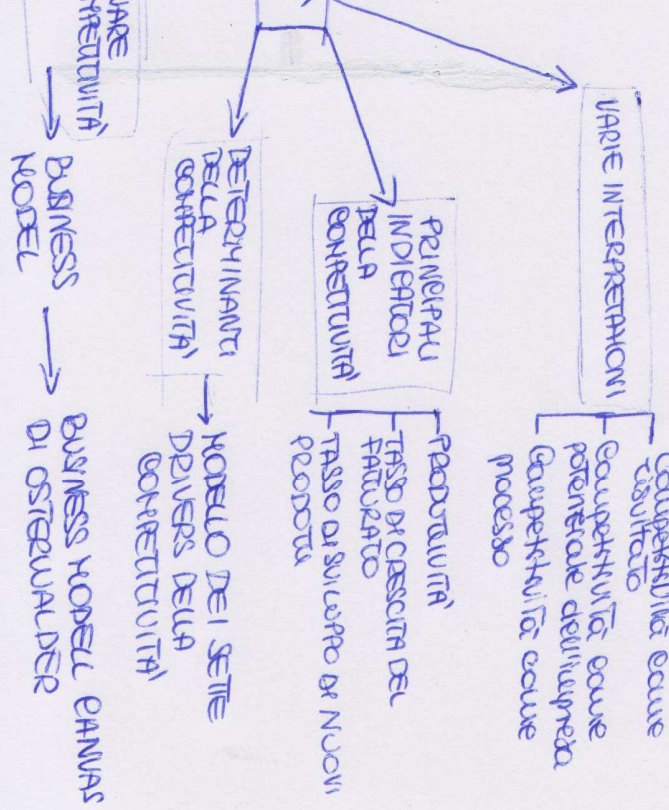 VARIE INTERPRETAZIONI
Competitività come
risultato
Competitività come
potenziale dell'impresa
Competitività come
processo
PRINCIPALI
INDICATORI
DELLA
COMPETITIVITA'
PRODUTTIVITA'
TASSO DI CRESCITA DEL
FATTURATO
TASSO DI SVILUPPO DI NUOVI
PRODOTTI
DETERMINANTI
DELLA
COMPETITIVITA'
MODELLO DEI SETTE
DRIVERS DELLA
COMPETITIVITA'
BUSINESS
MODEL
BUSINESS MODELL CANVAS
DI OSTERWALDER